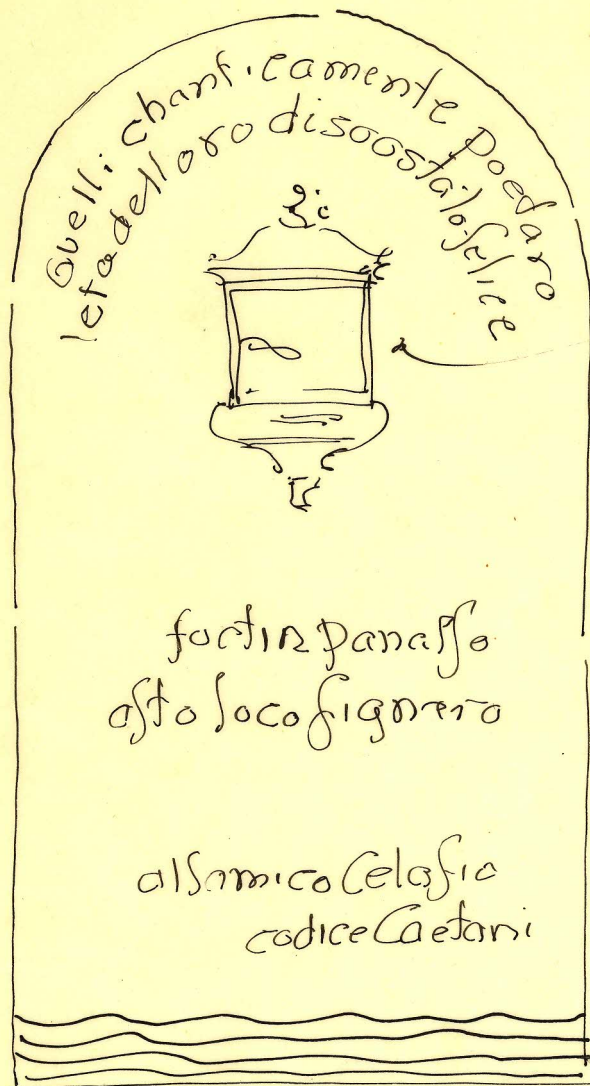 Quelli chanticamente poetaro
letadelloro disoostatofelice
forfin parnasso
esto loco signaro
all'amico Gelasio
codice Caetani